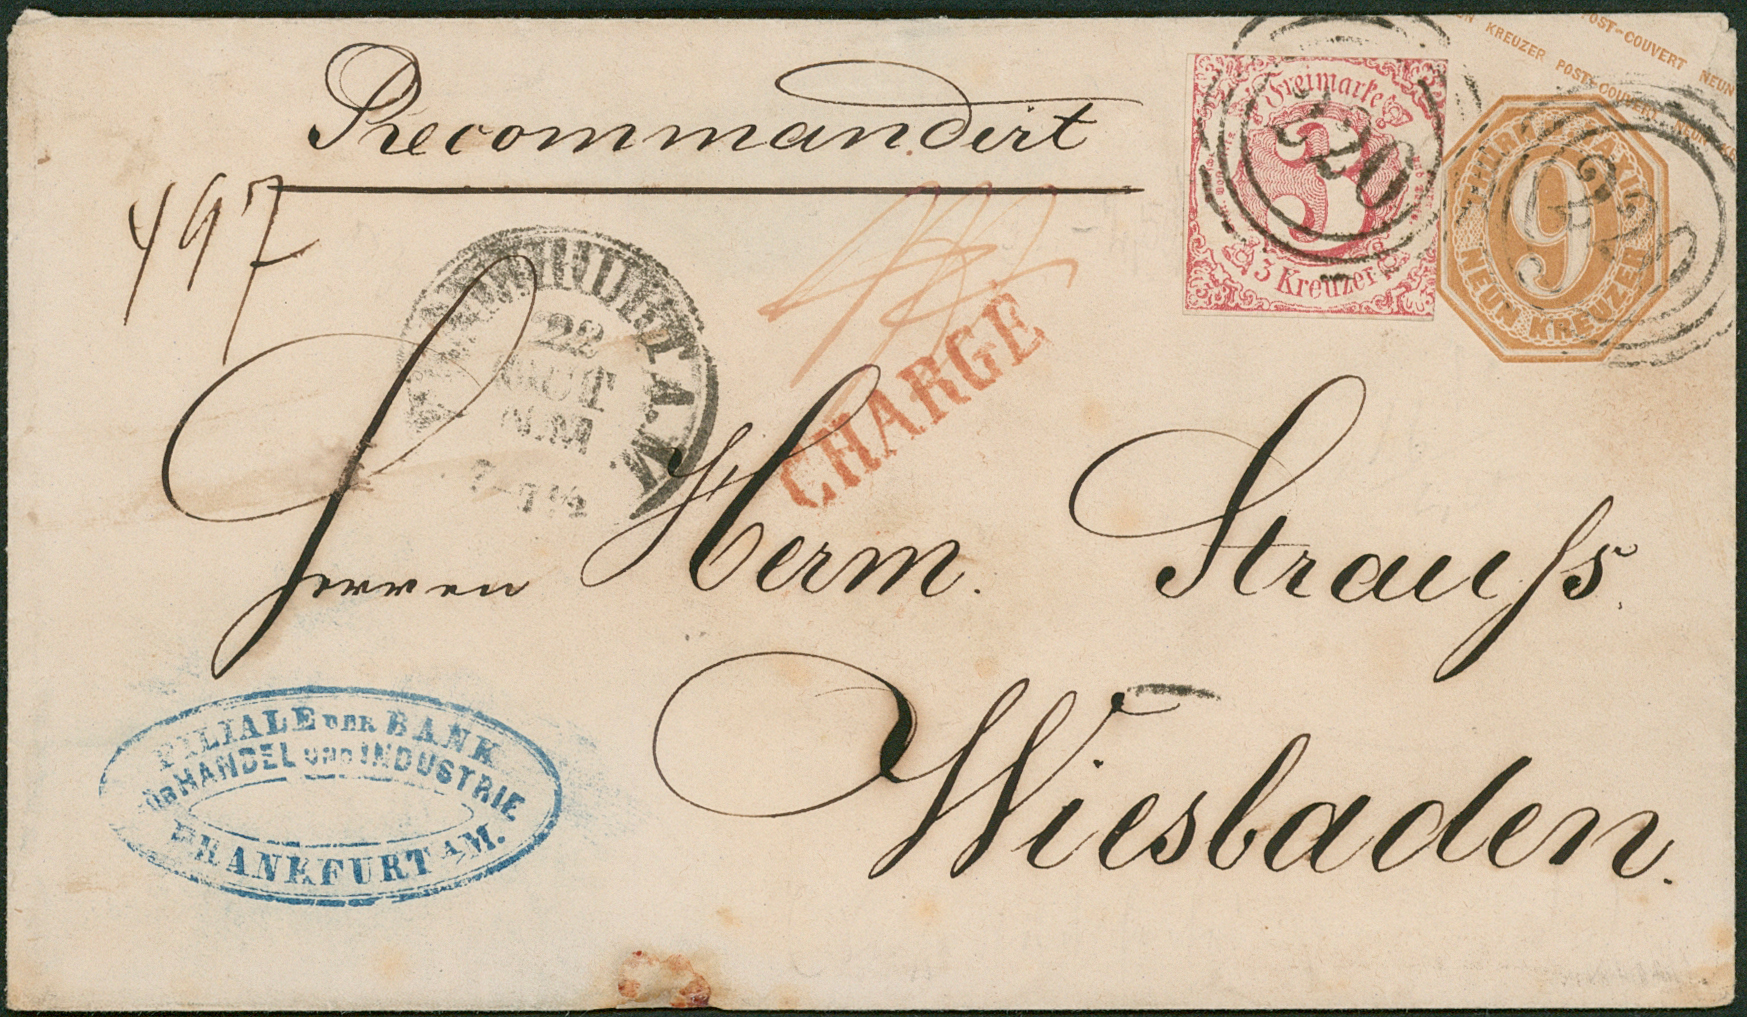 Recommandirt
497
POST-COUVERT NEUN
KREUZER POST-COUVERT NEUN
Freimarke
3
3 Kreuzer
220
THURN
TAXIS
9
NEUN KREUZER
220
FRANKFURT A. M.
22
OCT
N.M
CHARGE
Herren Herm. Strauſs.
Wiesbaden.
FILIALE DER BANK
FÜR HANDEL UND INDUSTRIE
FRANKFURT A.M.